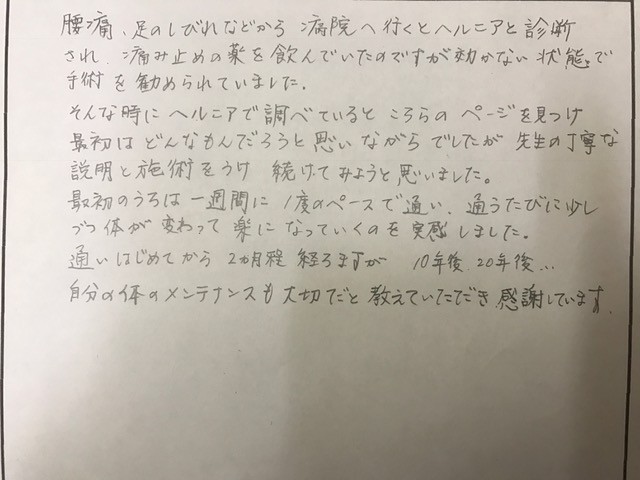 腰痛、足のしびれなどから 病院へ行くとヘルニアと診断
され、痛み止めの薬を飲んでいたのですが効かない状態で
手術を勧められていました。
そんな時にヘルニアで調べていると こちらの ページを見つけ
最初は どんなもんだろうと思いながらでしたが 先生の丁寧な
説明と施術をうけ 続けてみようと思いました。
最初のうちは 一週間に 1度のペースで通い、通うたびに少し
づつ体が 変わって 楽になっていくのを 実感しました。
通いはじめてから 2カ月程 経ちますが 10年後、20年後…
自分の体のメンテナンスも大切だと教えていただき 感謝しています。